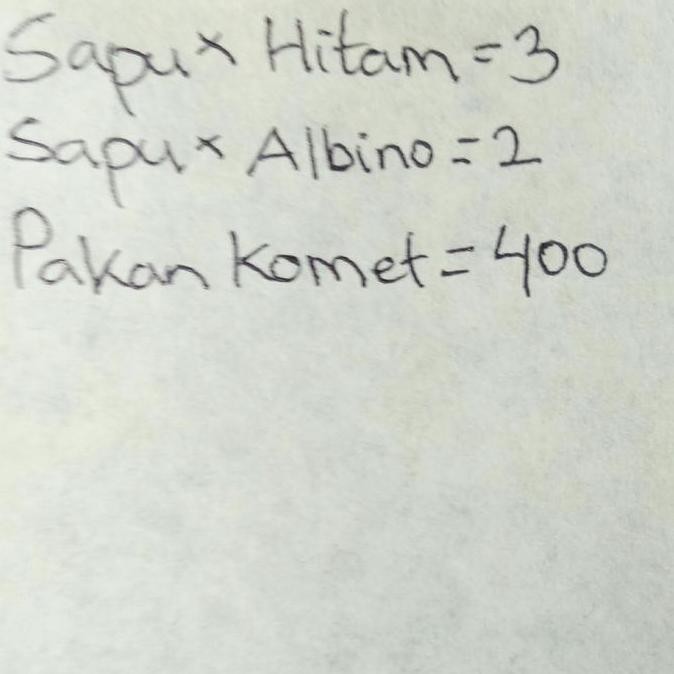 Sapu x Hitam = 3
Sapu x Albino = 2
Pakan Komet = 400